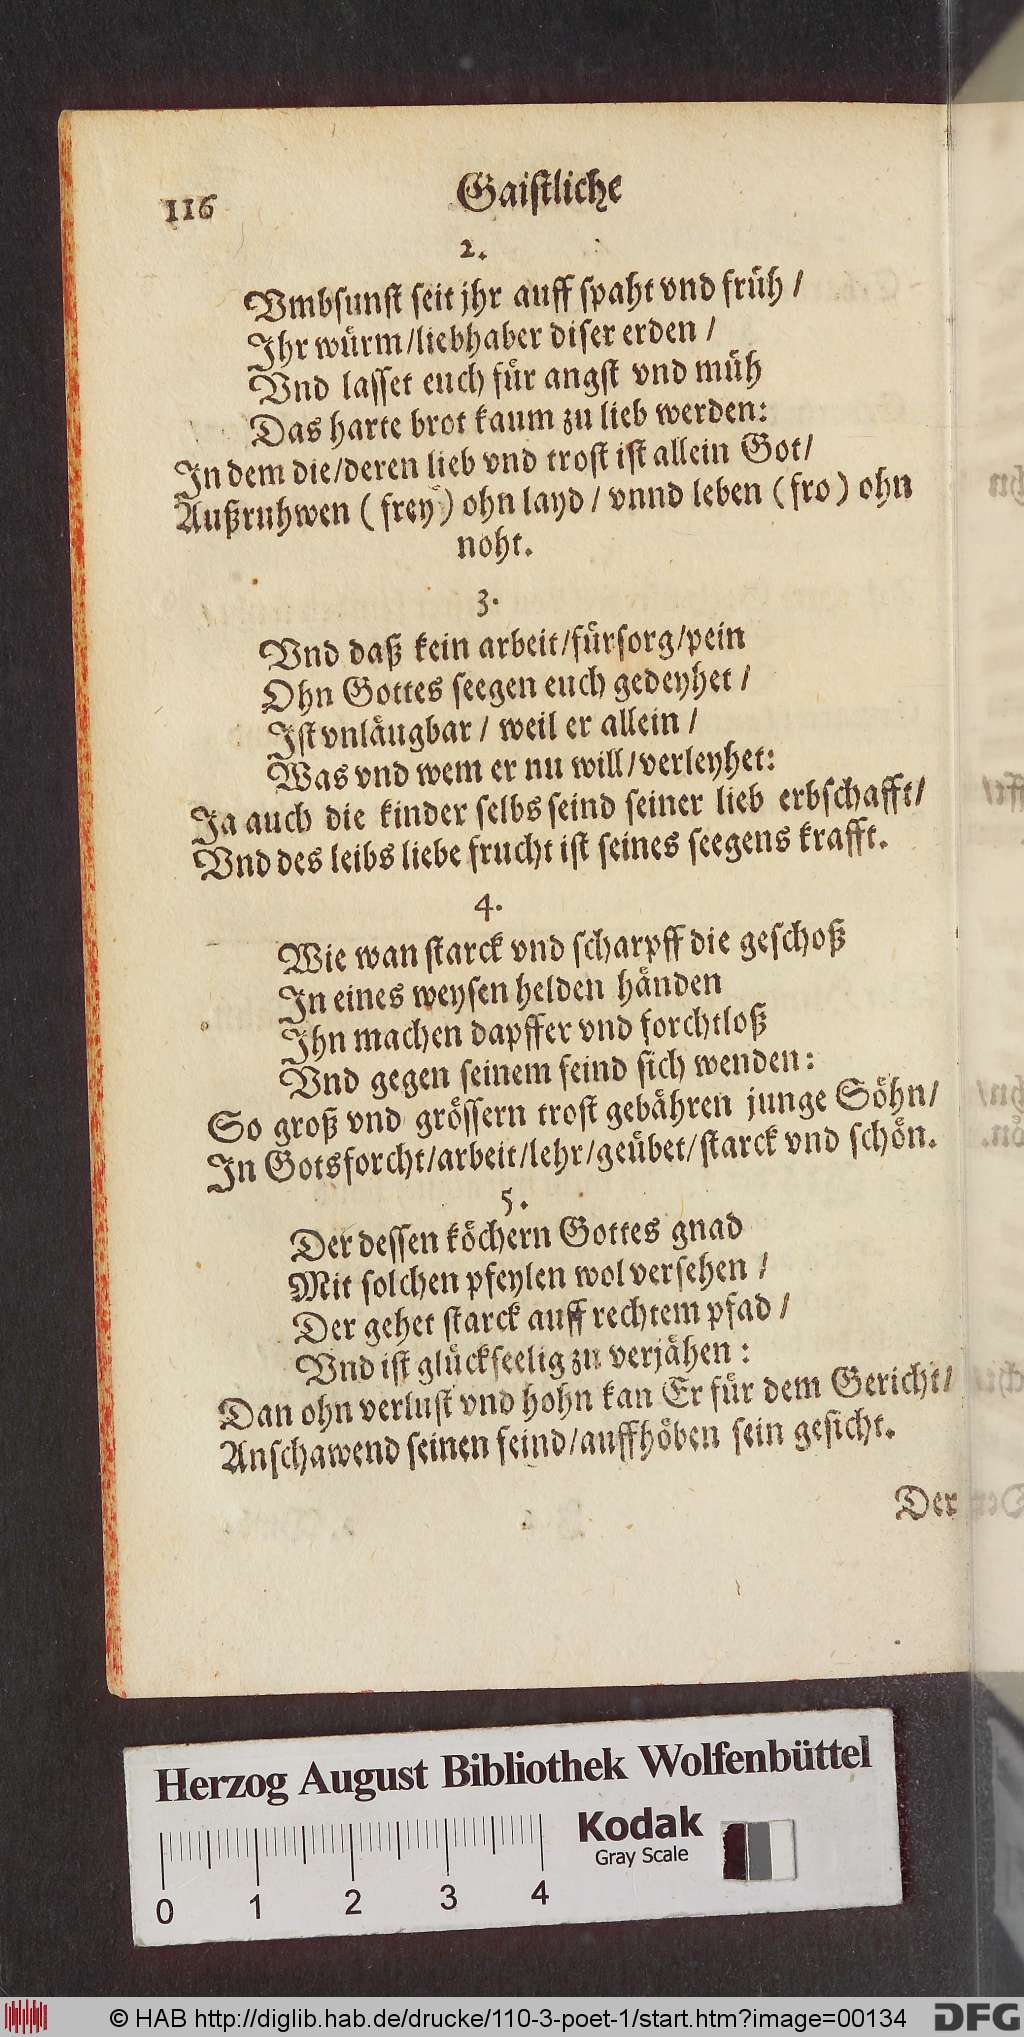 116
Gaistliche
2.
Vmbsunst seit jhr auff spaht vnd früh /
Ihr würm/liebhaber diser erden /
Vnd lasset euch für angst vnd müh
Das harte brot kaum zu lieb werden:
In dem die/deren lieb vnd trost ist allein Got/
Außruhwen ( frey ) ohn layd / vnnd leben ( fro ) ohn
noht.
3.
Vnd daß kein arbeit/fürsorg/pein
Ohn Gottes seegen euch gedeyhet /
Ist vnläugbar / weil er allein /
Was vnd wem er nu will/verleyhet:
Ja auch die kinder selbs seind seiner lieb erbschafft/
Vnd des leibs liebe frucht ist seines seegens krafft.
4.
Wie wan starck vnd scharpff die geschoß
In eines weysen helden händen
Ihn machen dapffer vnd forchtloß
Vnd gegen seinem feind sich wenden:
So groß vnd grössern trost gebähren junge Söhn/
In Gotsforcht/arbeit/lehr/geübet/starck vnd schön.
5.
Der dessen köchern Gottes gnad
Mit solchen pfeylen wol versehen /
Der gehet starck auff rechtem pfad /
Vnd ist glückseelig zu verjähen :
Dan ohn verlust vnd hohn kan Er für dem Gericht/
Anschawend seinen feind/auffhöben sein gesicht.
Der
Herzog August Bibliothek Wolfenbüttel
Kodak
Gray Scale
0 1 2 3 4
© HAB http://diglib.hab.de/drucke/110-3-poet-1/start.htm?image=00134
DFG